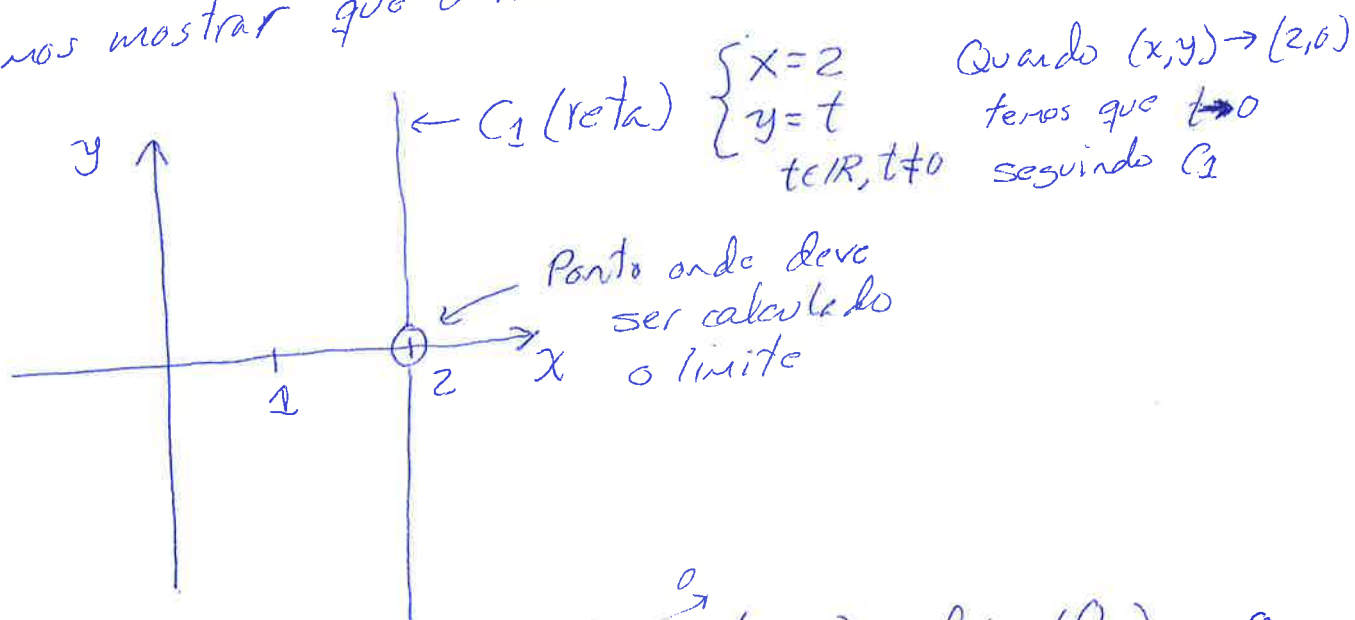 mos mostrar que o
← C1 (reta) { x=2
y=t
t∈IR, t≠0
Quando (x,y)→(2,0)
temos que t→0
seguindo C1
y
Ponto onde deve
ser calculado
o limite
1
2
x
0